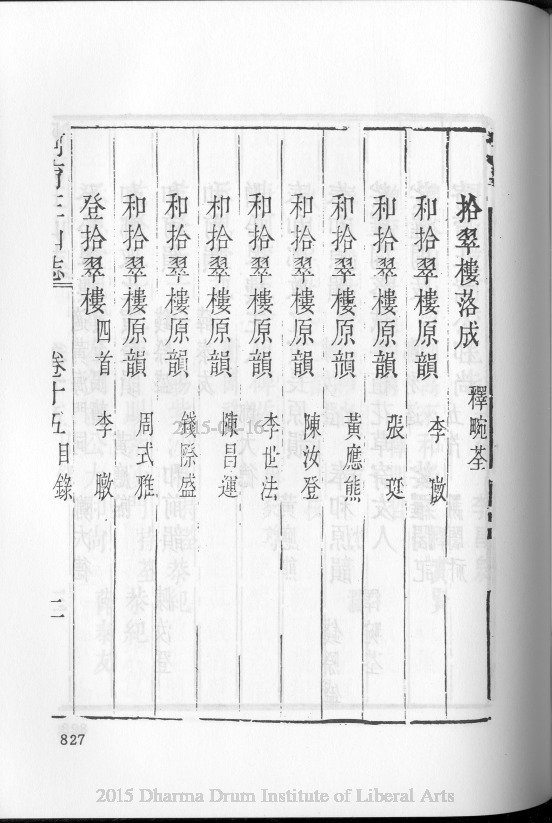 拾翠樓落成 釋畹荃
和拾翠樓原韻 李
和拾翠樓原韻 張
和拾翠樓原韻 黃應熊
和拾翠樓原韻 陳汝登
和拾翠樓原韻 李世法
和拾翠樓原韻 陳昌運
和拾翠樓原韻 錢際盛
和拾翠樓原韻 周式雅
登拾翠樓四首 李暾
育王山志 卷十五目錄 二
827
2015-01-16
2015 Dharma Drum Institute of Liberal Arts